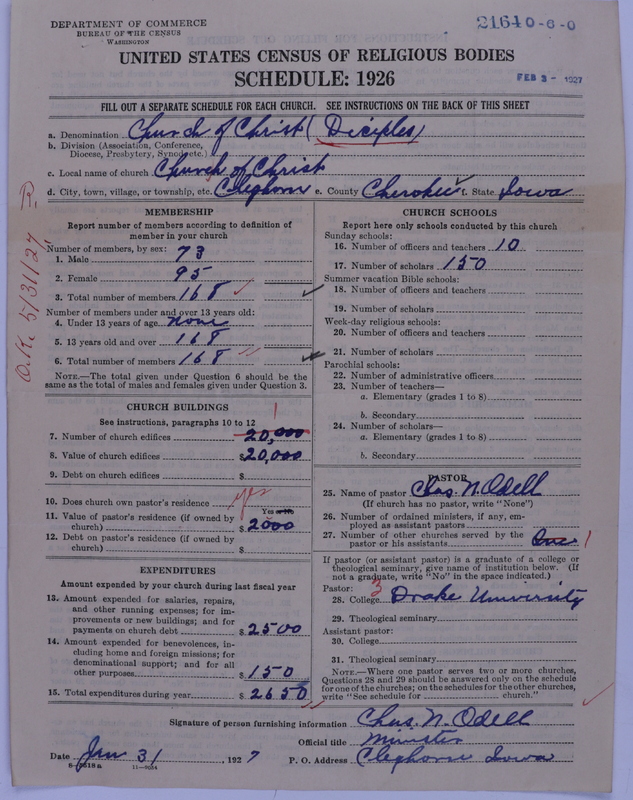 DEPARTMENT OF COMMERCE
BUREAU OF THE CENSUS
WASHINGTON
21640-6-0
UNITED STATES CENSUS OF RELIGIOUS BODIES
SCHEDULE: 1926
FEB 2 - 1927
FILL OUT A SEPARATE SCHEDULE FOR EACH CHURCH. SEE INSTRUCTIONS ON THE BACK OF THIS SHEET
a. Denomination Church of Christ (Disciples)
b. Division (Association, Conference, Diocese, Presbytery, Synod, etc.)
c. Local name of church Church of Christ
d. City, town, village, or township, etc. Cleghorn e. County Cherokee f. State Iowa
O.K. 5/31/27 R
MEMBERSHIP
Report number of members according to definition of member in your church
Number of members, by sex:
1. Male 73
2. Female 95
3. Total number of members 168
Number of members under and over 13 years old:
4. Under 13 years of age none
5. 13 years old and over 168
6. Total number of members 168
NOTE.—The total given under Question 6 should be the same as the total of males and females given under Question 3.
CHURCH BUILDINGS
See instructions, paragraphs 10 to 12
1
7. Number of church edifices 20,000
8. Value of church edifices $20,000
9. Debt on church edifices $
10. Does church own pastor's residence yes
Yes or No
11. Value of pastor's residence (if owned by church) $2000
12. Debt on pastor's residence (if owned by church) $
EXPENDITURES
Amount expended by your church during last fiscal year
13. Amount expended for salaries, repairs, and other running expenses; for improvements or new buildings; and for payments on church debt $2500
14. Amount expended for benevolences, including home and foreign missions; for denominational support; and for all other purposes $150
15. Total expenditures during year $2650
CHURCH SCHOOLS
Report here only schools conducted by this church
Sunday schools:
16. Number of officers and teachers 10
17. Number of scholars 150
Summer vacation Bible schools:
18. Number of officers and teachers
19. Number of scholars
Week-day religious schools:
20. Number of officers and teachers
21. Number of scholars
Parochial schools:
22. Number of administrative officers
23. Number of teachers—
a. Elementary (grades 1 to 8)
b. Secondary
24. Number of scholars—
a. Elementary (grades 1 to 8)
b. Secondary
PASTOR
25. Name of pastor Chas. N. Odell
(If church has no pastor, write "None")
26. Number of ordained ministers, if any, employed as assistant pastors
27. Number of other churches served by the pastor or his assistants One 1
If pastor (or assistant pastor) is a graduate of a college or theological seminary, give name of institution below. (If not a graduate, write "No" in the space indicated.)
Pastor: 3
28. College Drake University
29. Theological seminary
Assistant pastor:
30. College
31. Theological seminary
NOTE.—Where one pastor serves two or more churches, Questions 28 and 29 should be answered only on the schedule for one of the churches; on the schedules for the other churches, write "See schedule for church."
Signature of person furnishing information Chas. N. Odell
Official title Minister
Date Jan 31, 1927 P. O. Address Cleghorn Iowa